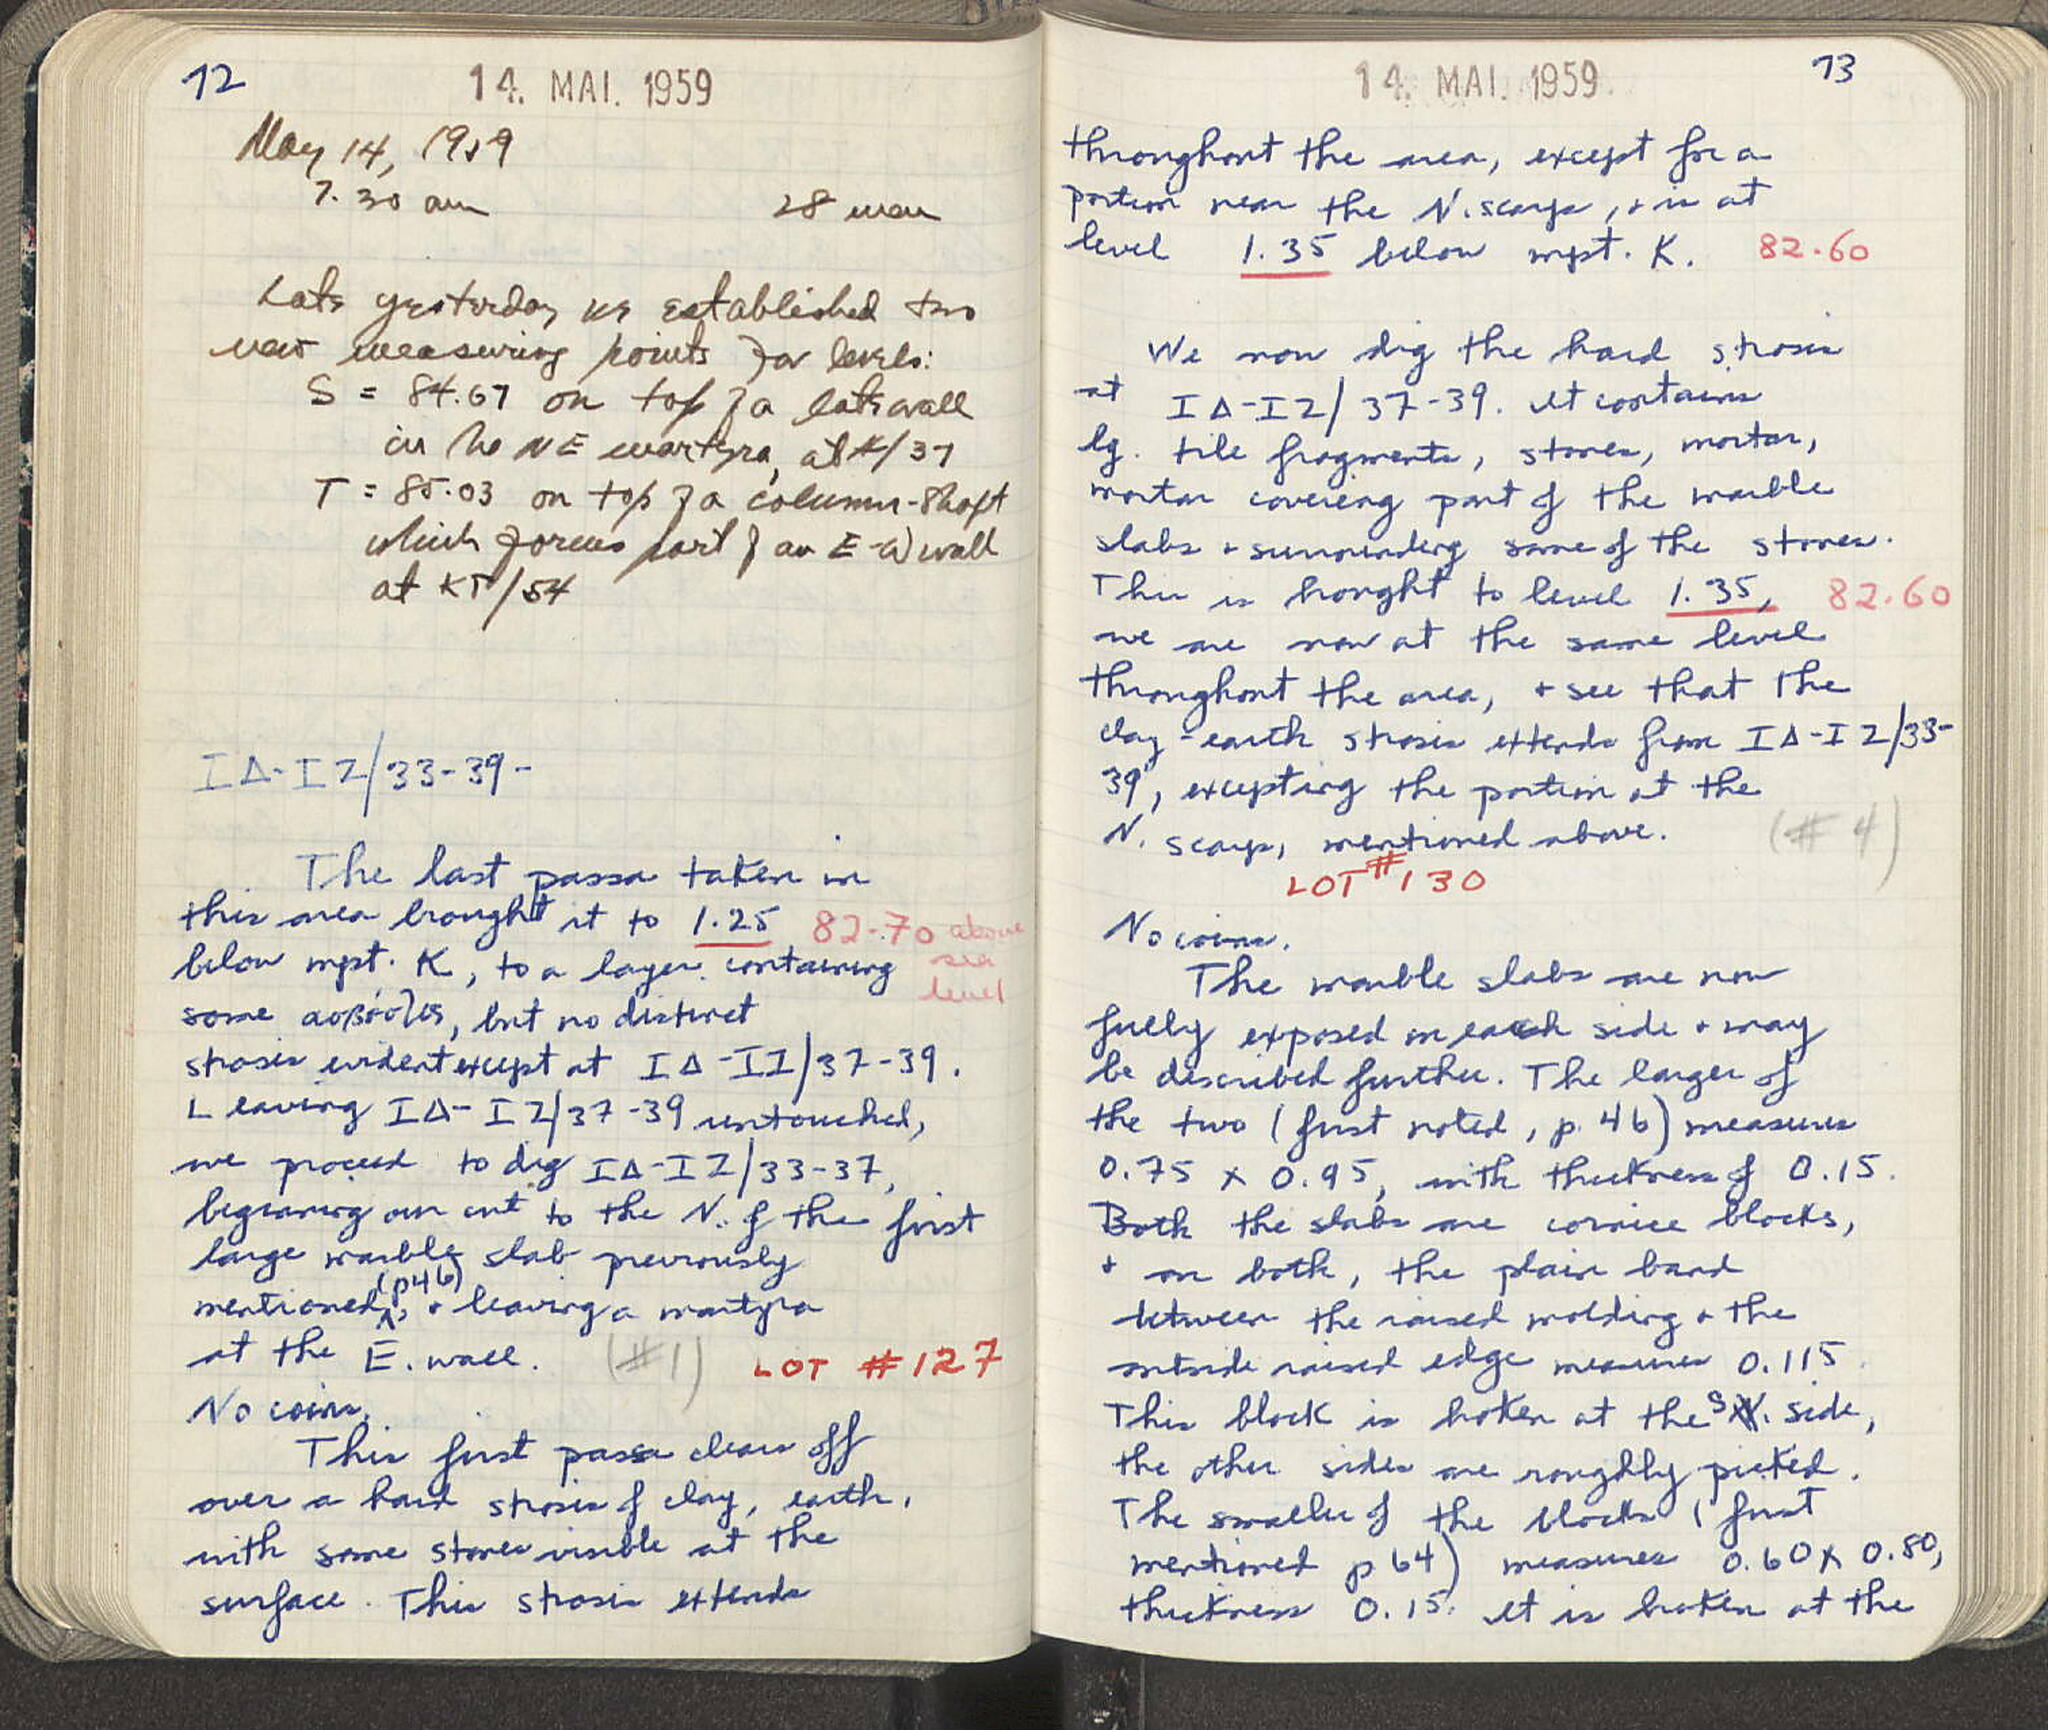 72
14. MAI. 1959
May 14, 1959
7.30 am 28 men
Late yesterday we established two
new measuring points for levels:
S = 84.67 on top of a late wall
in the NE martyra, at K/37
T = 85.03 on top of a column-shaft
which forms part of an E-W wall
at KT/54
IΔ-IZ/33-39-
The last passa taken in
this area brought it to 1.25 82.70 above
sea
level
below mpt. K, to a layer containing
some ασβόλες, but no distinct
strosis evident except at IΔ-IZ/37-39.
Leaving IΔ-IZ/37-39 untouched,
we proceed to dig IΔ-IZ/33-37,
beginning our cut to the N. of the first
large marble slab previously
mentioned (p46), + leaving a martyra
at the E. wall. (#1) LOT #127
No coins.
This first passa clears off
over a hard strosis of clay, earth,
with some stones visible at the
surface. This strosis extends
14. MAI. 1959
73
throughout the area, except for a
portion near the N. scarp, + is at
level 1.35 below mpt. K. 82.60
We now dig the hard strosis
at IΔ-IZ/37-39. It contains
lg. tile fragments, stones, mortar,
mortar covering part of the marble
slabs + surrounding some of the stones.
This is brought to level 1.35, 82.60
we are now at the same level
throughout the area, + see that the
clay-earth strosis extends from IΔ-IZ/33-
39, excepting the portion at the
N. scarp, mentioned above. (#4)
LOT #130
No coins.
The marble slabs are now
fully exposed on each side + may
be described further. The larger of
the two (first noted, p. 46) measures
0.75 x 0.95, with thickness of 0.15.
Both the slabs are cornice blocks,
+ on both, the plain band
between the raised molding + the
outside raised edge measures 0.115.
This block is broken at the S. side,
the other sides are roughly picked.
The smaller of the blocks (first
mentioned p 64) measures 0.60 x 0.80,
thickness 0.15. It is broken at the